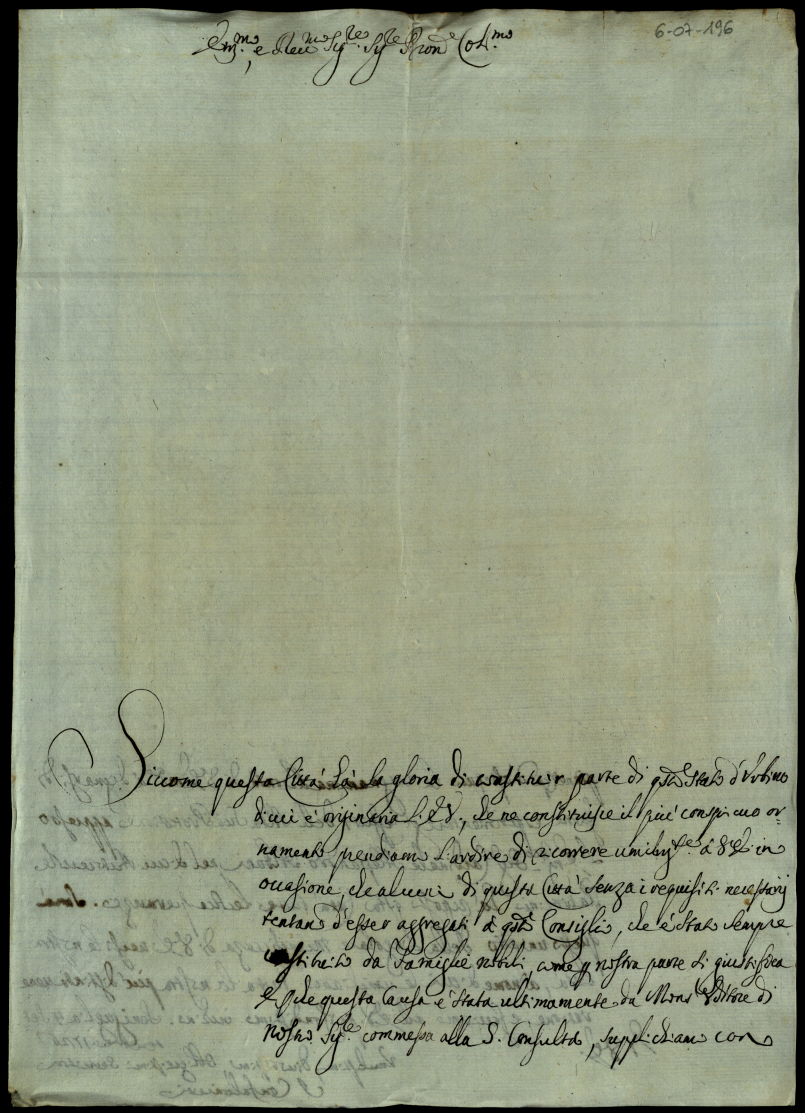 6-07-196
Em.mo, e Rev.mo Sig.re Sig.re Pron.e Col.mo
Siccome questa Città hà la gloria di constituir parte di q.sto Stato d'Urbino
di cui è originaria l'E.V., che ne constituisce il più conspicuo or-
namento prendiamo l'ardire di ricorrere umilm.te à V.E. in
occasione, che alcuni di questa Città senza i requisiti necessarij
tentano d'esser aggregati à q.sto Consiglio, che è stato sempre
constituito da Famiglie nobili, come p nostra parte si giustifica
E p che questa Causa è stata ultimamente da Mons.r Uditore di
nostro Sig.re commessa alla S. Consulta, supplichiamo con